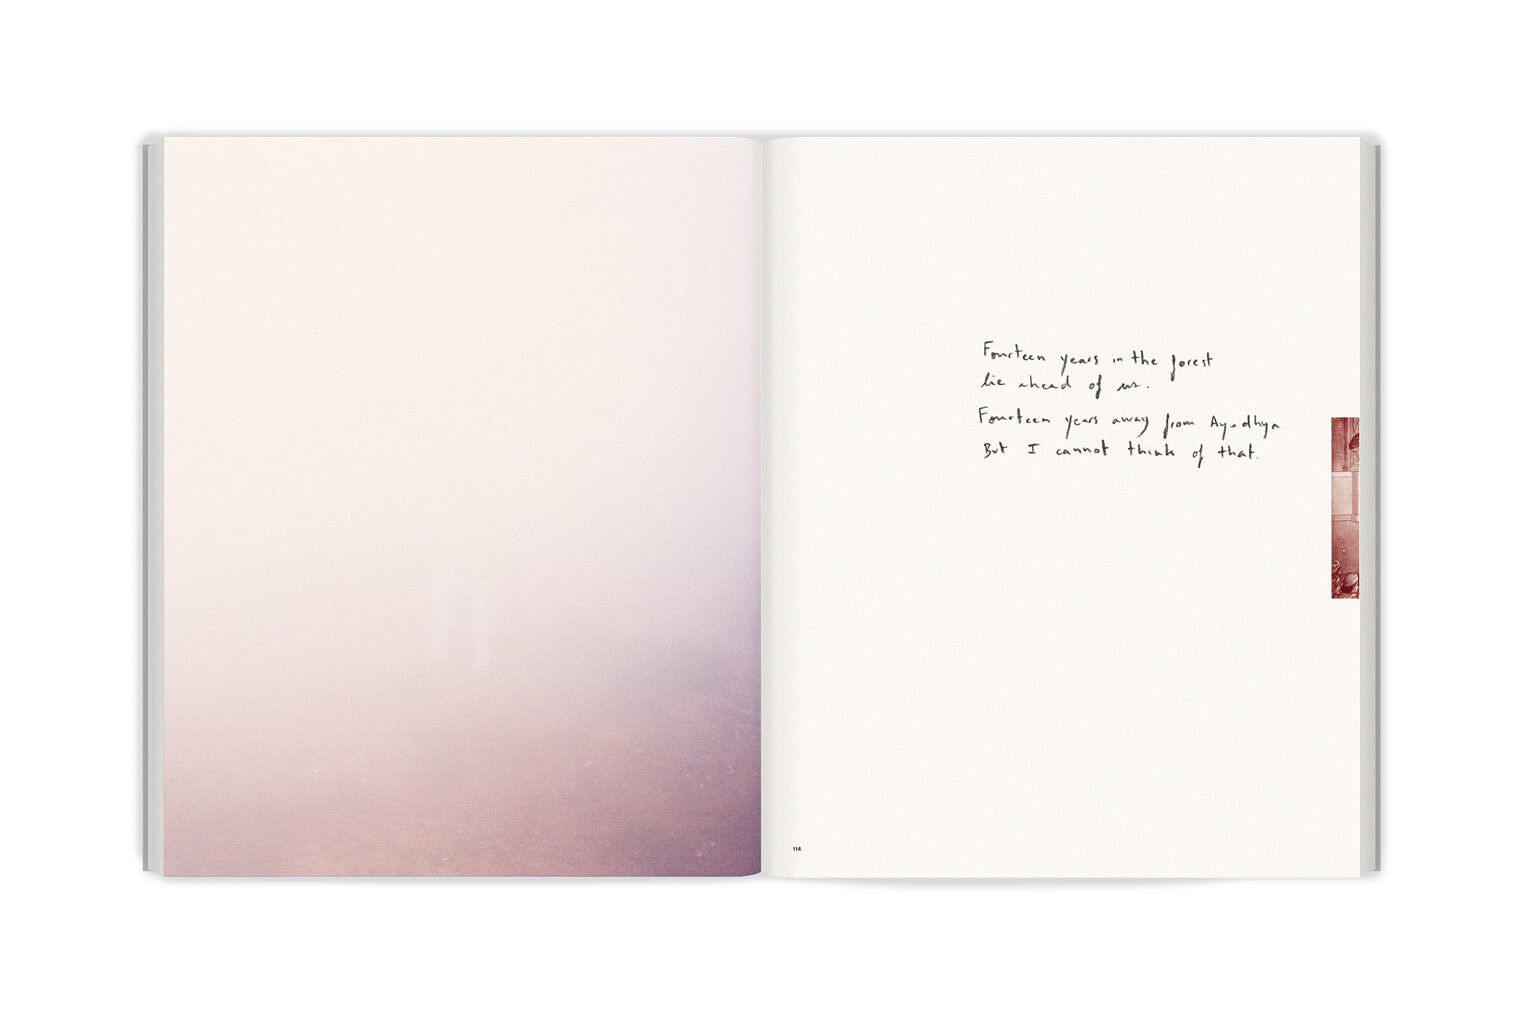 Fourteen years in the forest
lie ahead of us.
Fourteen years away from Ayodhya
But I cannot think of that.
114